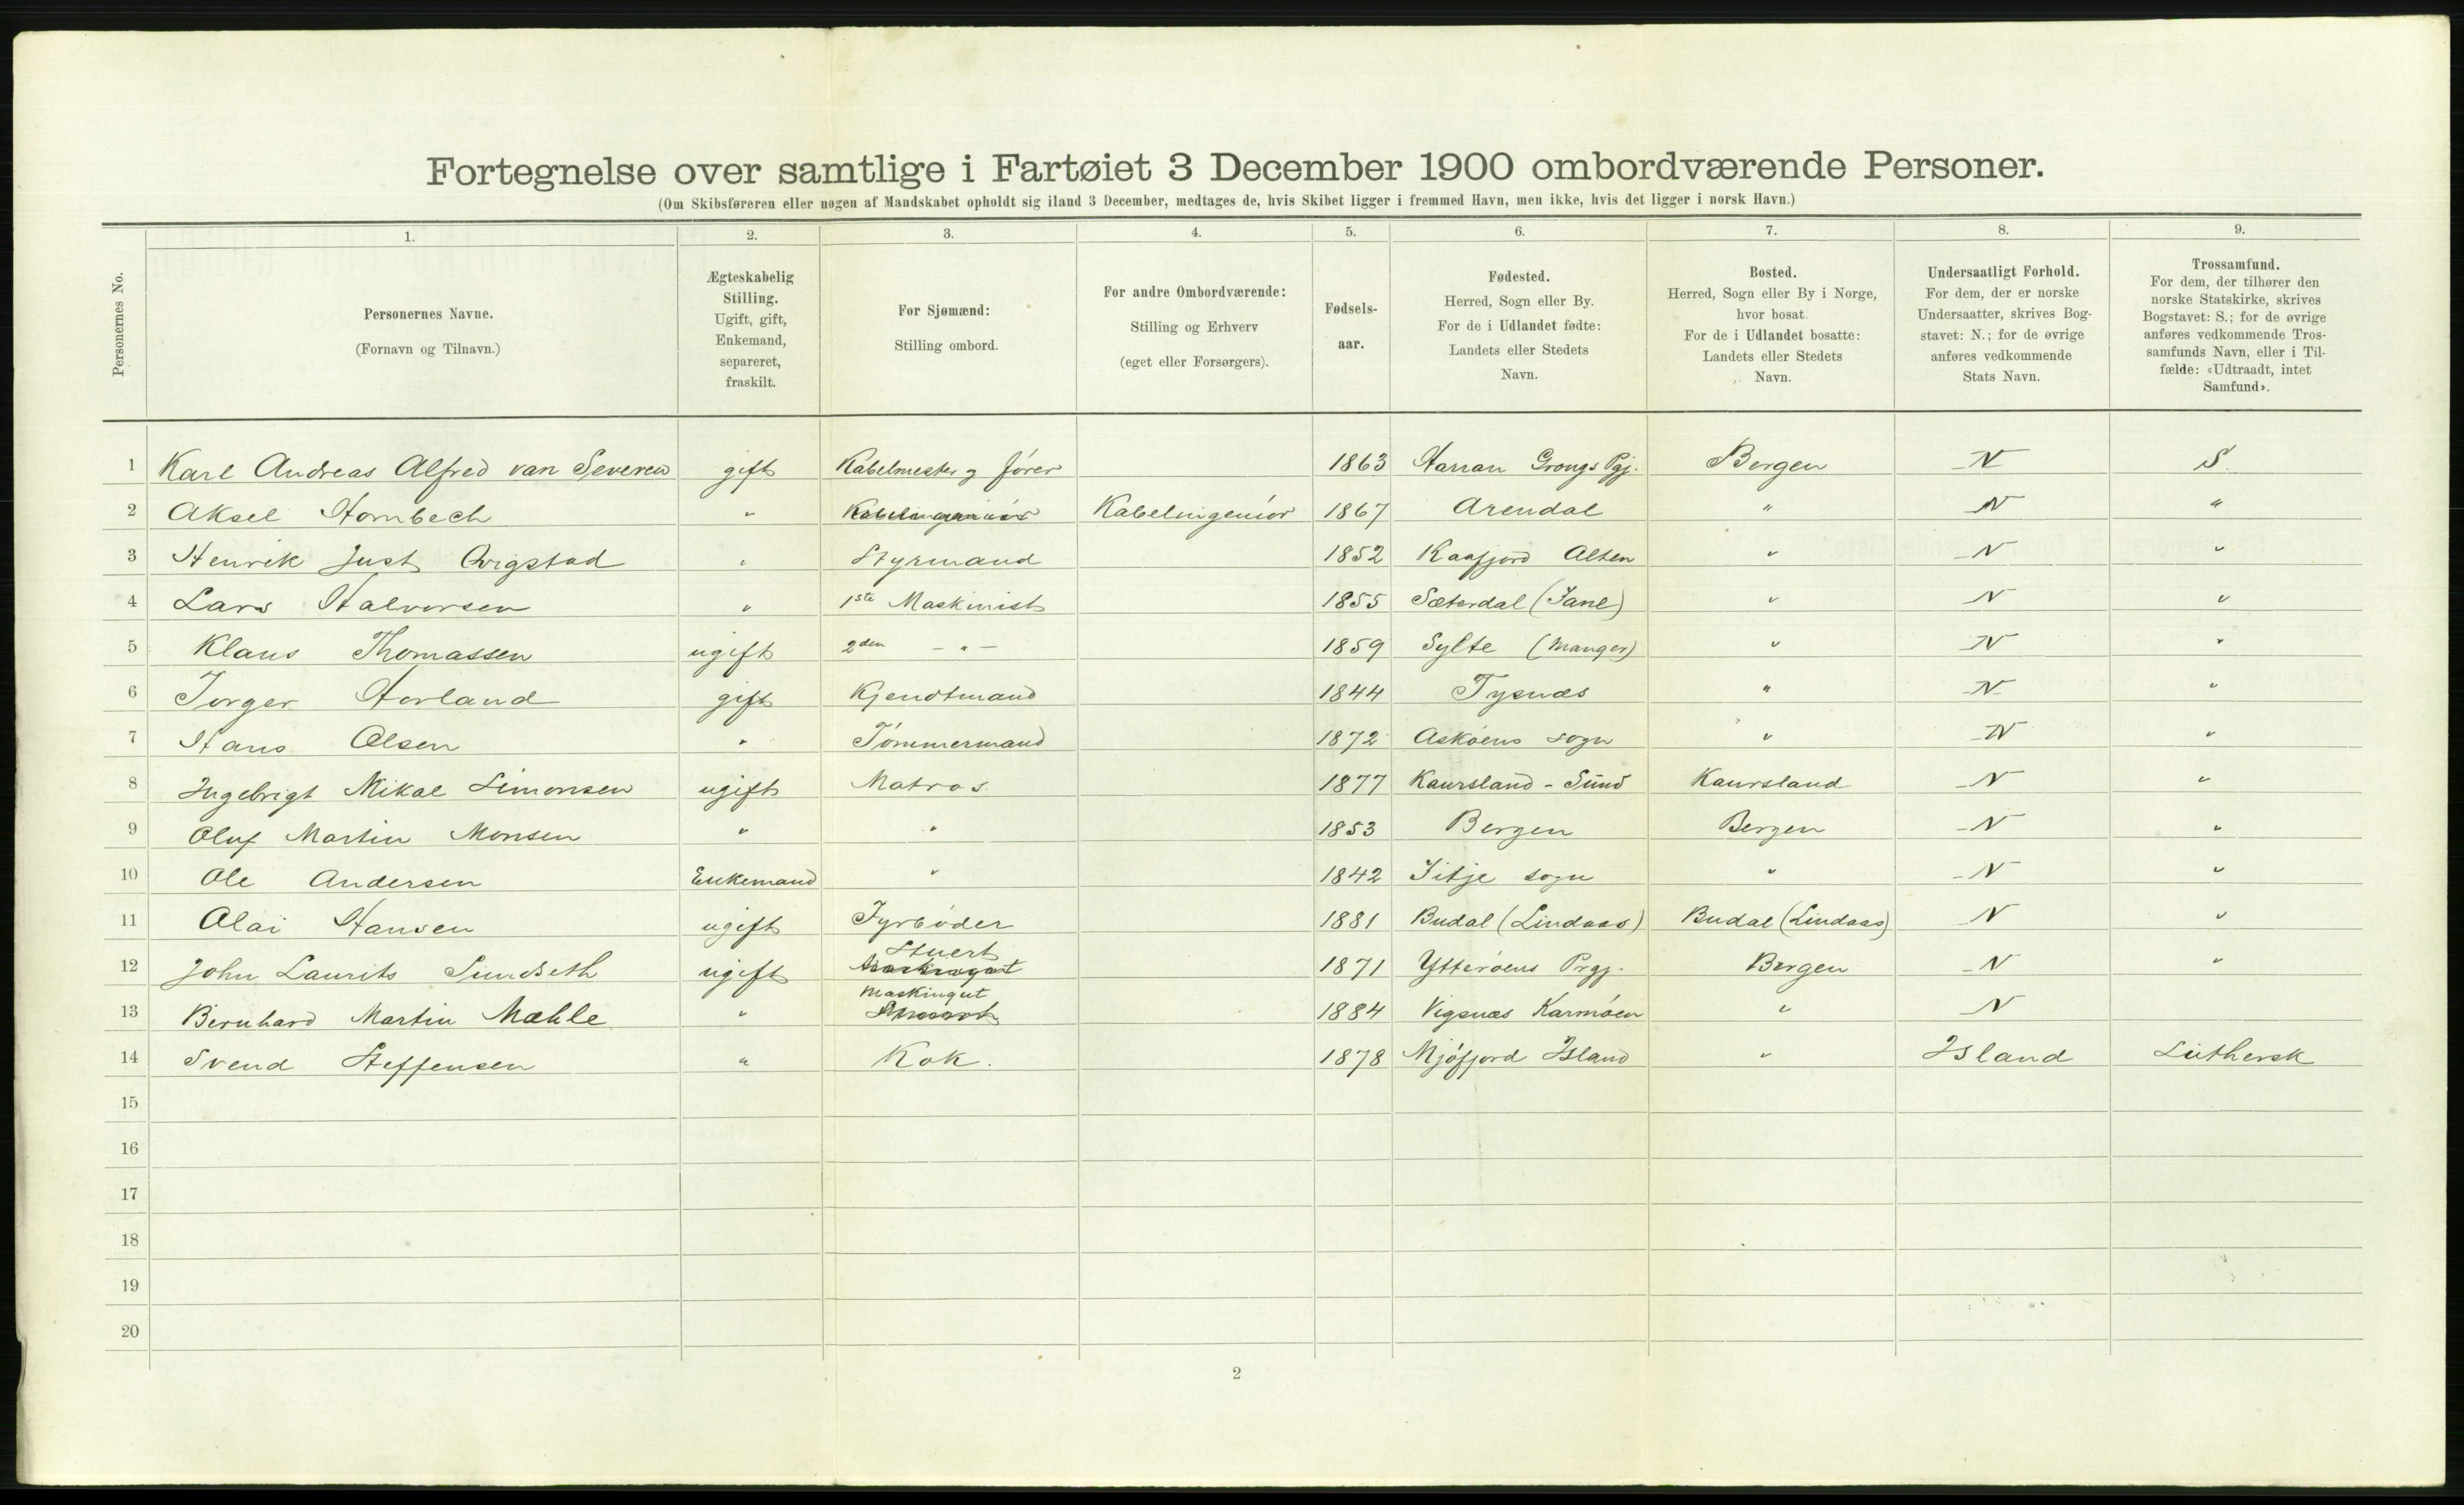 Fortegnelse over samtlige i Fartøiet 3 December 1900 ombordværende Personer.
(Om Skibsføreren eller nogen af Mandskabet opholdt sig iland 3 December, medtages de, hvis Skibet ligger i fremmed Havn, men ikke, hvis det ligger i norsk Havn.)
Personernes No.
1. 2. 3. 4. 5. 6. 7. 8. 9.
Personernes Navne.
(Fornavn og Tilnavn.)
Ægteskabelig
Stilling.
Ugift, gift,
Enkemand,
separeret,
fraskilt.
For Sjømænd:
Stilling ombord.
For andre Ombordværende:
Stilling og Erhverv
(eget eller Forsørgers).
Fødsels-
aar.
Fødested.
Herred, Sogn eller By.
For de i Udlandet fødte:
Landets eller Stedets
Navn.
Bosted.
Herred, Sogn eller By i Norge,
hvor bosat.
For de i Udlandet bosatte:
Landets eller Stedets
Navn.
Undersaatligt Forhold.
For dem, der er norske
Undersaatter, skrives Bog-
stavet: N.; for de øvrige
anføres vedkommende
Stats Navn.
Trossamfund.
For dem, der tilhører den
norske Statskirke, skrives
Bogstavet: S.; for de øvrige
anføres vedkommende Tros-
samfunds Navn, eller i Til-
fælde: «Udtraadt, intet
Samfund».
1 Karl Andreas Alfred van Severen gift Kabelmester og fører 1863 Harran Grongs Pgj. Bergen N S.
2 Aksel Hornbech " Kabelingeniør Kabelingeniør 1867 Arendal " N "
3 Henrik Just Qvigstad " Styrmand 1852 Kaafjord Alten " N "
4 Lars Halvorsen " 1ste Maskinist 1855 Sæterdal " N "
5 Klaus Thomassen ugift 2den - " - 1859 Sylte (Manger) " N "
6 Torger Hovland gift Kjendtmand 1844 Tysnæs " N "
7 Hans Olsen " Tømmermand 1872 Askøens sogn " N "
8 Ingebrigt Mikal Simonsen ugift Matros 1877 Kaursland - Sund Kaursland N "
9 Oluf Martin Monsen " " 1853 Bergen Bergen N "
10 Ole Andersen Enkemand " 1842 Fitje sogn " N "
11 Olai Hansen ugift Fyrbøder 1881 Budal (Lindaas) Budal (Lindaas) N "
12 John Laurits Sundseth ugift Stuert Maskingut 1871 Ytterøens Prgj. Bergen N "
13 Bernhard Martin Mæhle " Maskingut 1884 Vigsnæs Karmøen " N
14 Svend Steffensen " Kok. 1878 Mjófjord Island " Island Luthersk
15
16
17
18
19
20
2